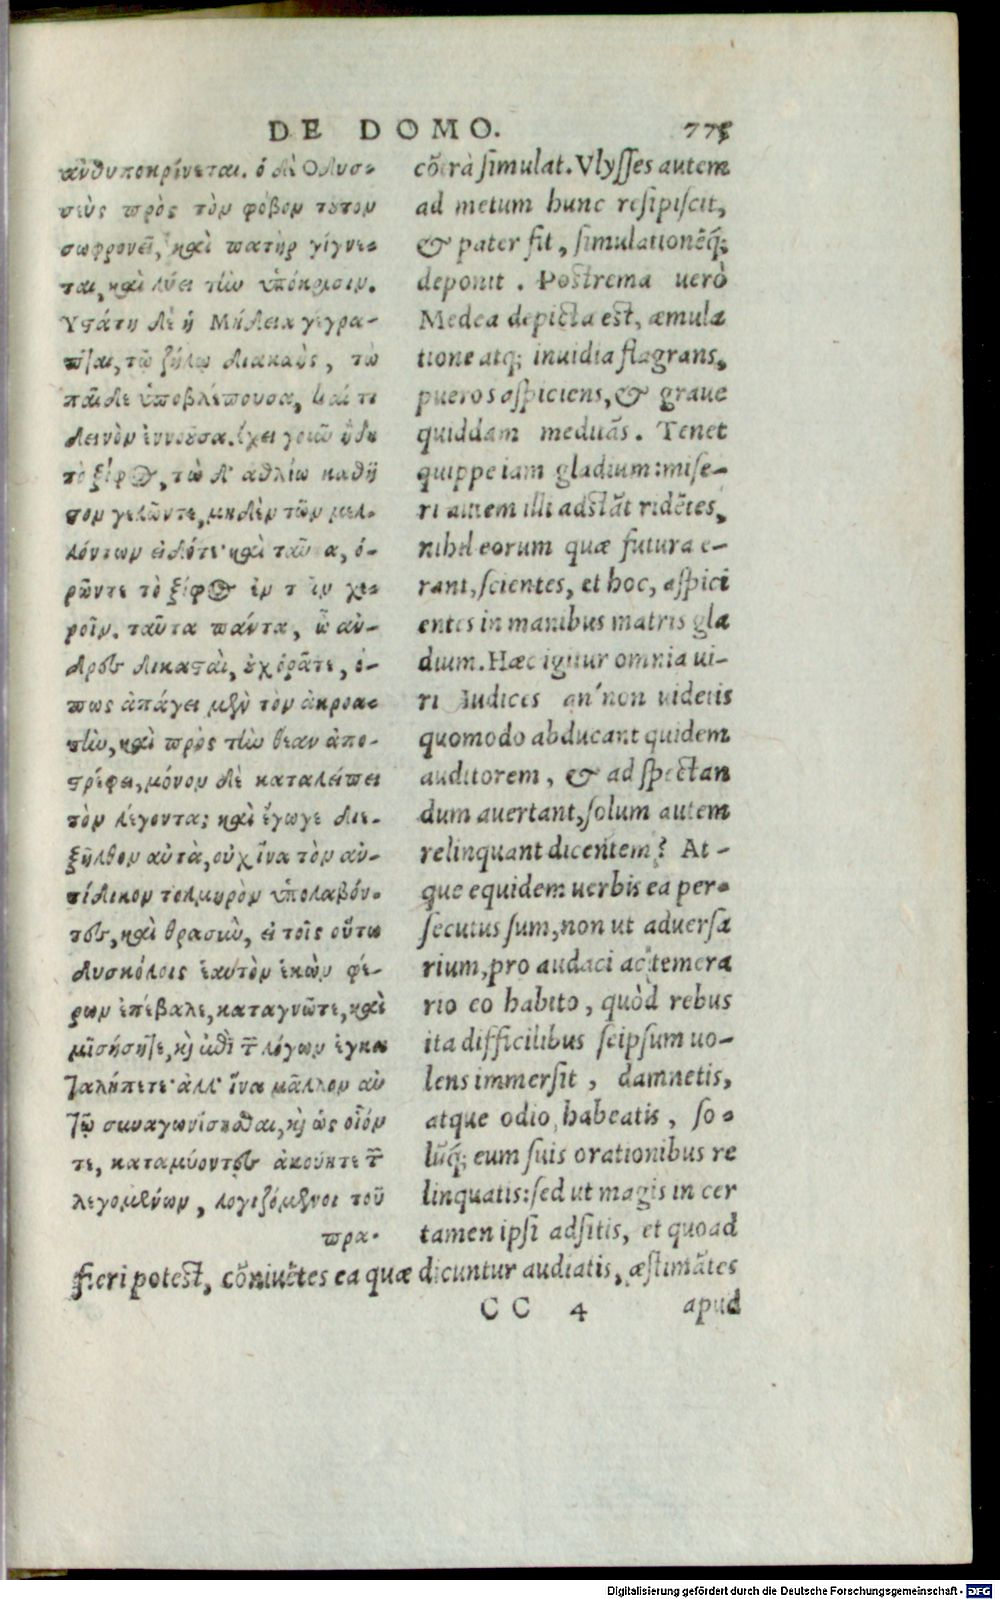 DE DOMO. 775
ἀνθυποκρίνεται. ὁ δὲ Ὀδυσ-
σεὺς πρὸς τὸν φόβον τοῦτον
σωφρονεῖ, καὶ πατὴρ γίγνε-
ται, καὶ λύει τὴν ὑπόκρισιν.
Ὑστάτη δὲ ἡ Μήδεια γέγρα-
πται, τῷ ζήλῳ διακαὴς, τὼ
παῖδε ὑποβλέπουσα, καί τι
δεινὸν ἐννοοῦσα. ἔχει γοῦν ἤδη
τὸ ξίφος, τὼ δ' ἀθλίω καθῆ
σθον γελῶντε, μηδὲν τῶν μελ-
λόντων εἰδότε· καὶ ταῦτα, ὁ-
ρῶντε τὸ ξίφος ἐν ταῖν χε-
ροῖν. ταῦτα πάντα, ὦ ἄν-
δρες δικασταὶ, οὐχ ὁρᾶτε, ὅ-
πως ἀπάγει μὲν τὸν ἀκροα-
τὴν, καὶ πρὸς τὴν θέαν ἀπο-
στρέφει, μόνον δὲ καταλείπει
τὸν λέγοντα; καὶ ἔγωγε διε-
ξῆλθον αὐτὰ, οὐχ ἵνα τὸν ἀν-
τίδικον τολμηρὸν ὑπολαβόν-
τες, καὶ θρασὺν, εἰ τοῖς οὕτω
δυσκόλοις ἑαυτὸν ἑκὼν φέ-
ρων ἐπέβαλε, καταγνῶτε, καὶ
μισήσητε, καὶ ἐπὶ τῶν λόγων ἐγκα
ταλίπητε· ἀλλ' ἵνα μᾶλλον αὐ
τῷ συναγωνίσησθαι, καὶ ὡς οἷόν
τε, καταμύοντες ἀκούητε τῶν
λεγομένων, λογιζόμενοι τοῦ
πρα-
cõtrà simulat. Vlysses autem
ad metum hunc resipiscit,
& pater fit, simulationẽq;
deponit. Postrema uerò
Medea depicta est, æmula
tione atq; inuidia flagrans,
pueros aspiciens, & graue
quiddam meduãs. Tenet
quippe iam gladium: mise-
ri autem illi adstãt ridẽtes,
nihil eorum quæ futura e-
rant, scientes, et hoc, aspici
entes in manibus matris gla
dium. Hæc igitur omnia ui-
ri Iudices an' non uidetis
quomodo abducant quidem
auditorem, & ad spectan
dum auertant, solum autem
relinquant dicentem? At-
que equidem uerbis ea per-
secutus sum, non ut aduersa
rium, pro audaci ac temera
rio eo habito, quòd rebus
ita difficilibus seipsum uo-
lens immersit, damnetis,
atque odio habeatis, so-
lũq; eum suis orationibus re
linquatis: sed ut magis in cer
tamen ipsi adsitis, et quoad
fieri potest, cõniuẽtes ea quæ dicuntur audiatis, æstimãtes
CC 4 apud
Digitalisierung gefördert durch die Deutsche Forschungsgemeinschaft - DFG